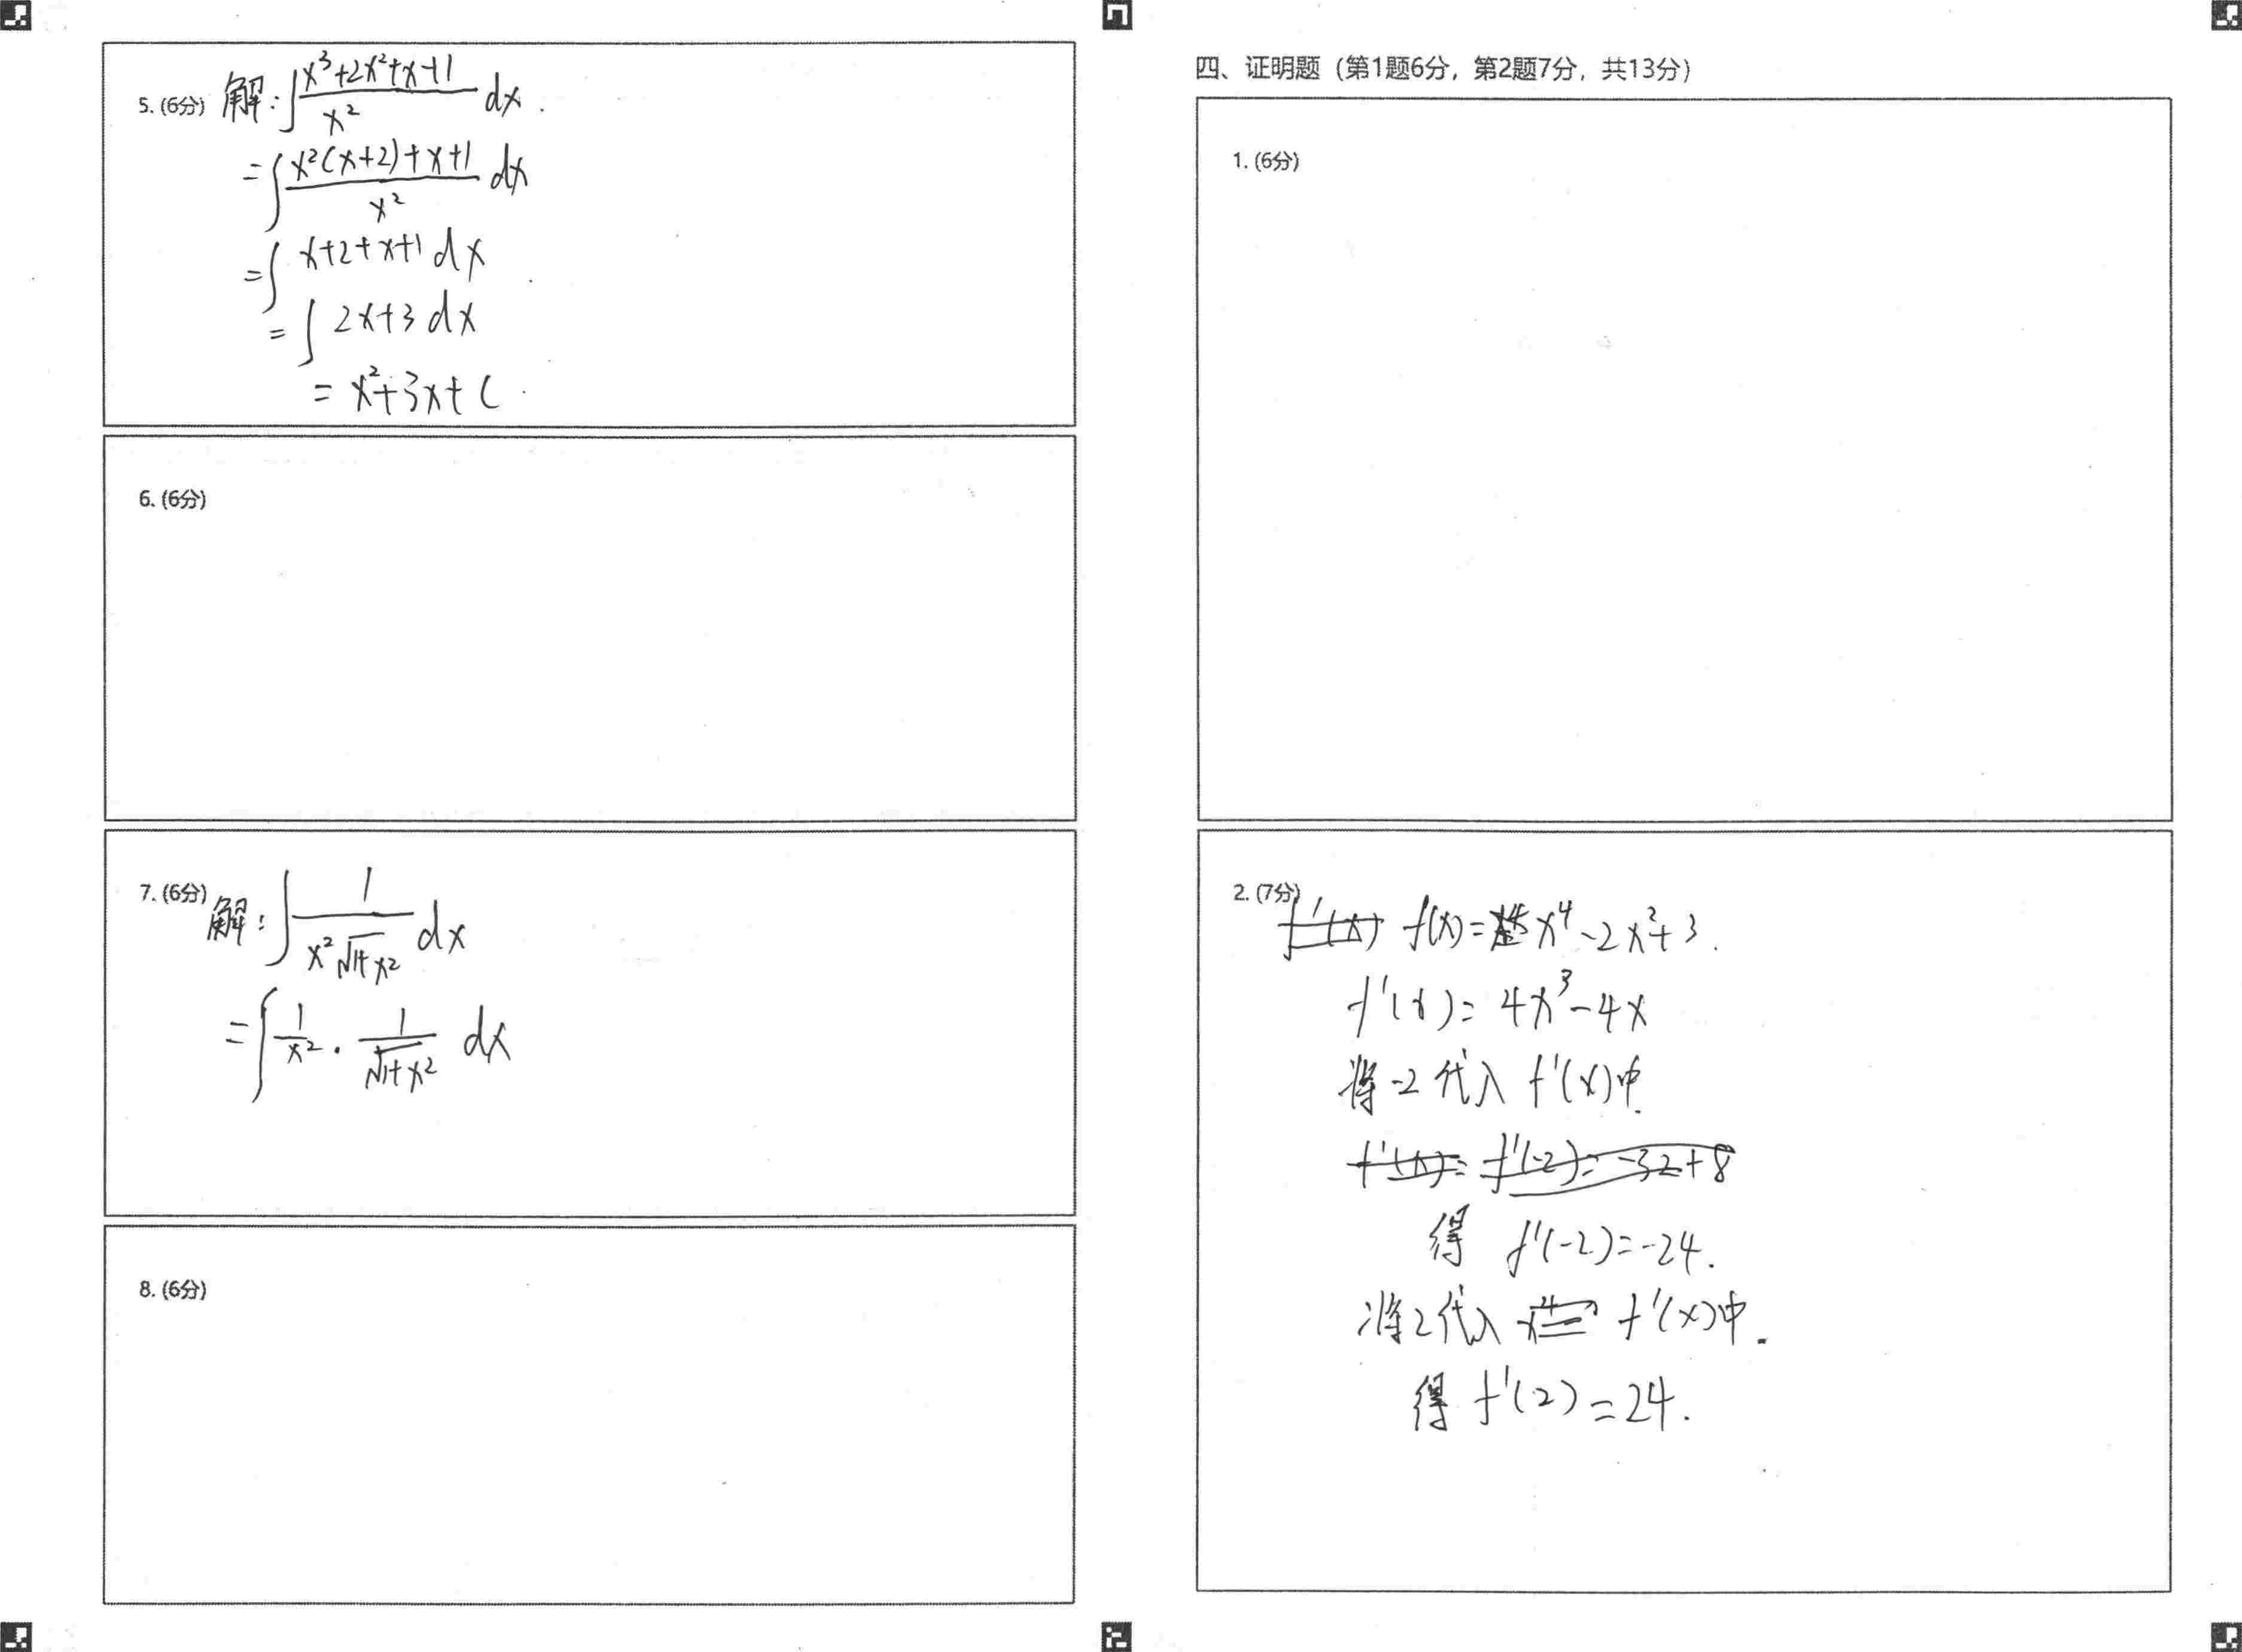 5. (6分) 解: ∫ (x³+2x²+x+1)/x² dx.
= ∫ (x²(x+2)+x+1)/x² dx
= ∫ x+2+x+1 dx
= ∫ 2x+3 dx
= x²+3x+C.
6. (6分)
7. (6分) 解: ∫ 1/(x²√(1+x²)) dx
= ∫ 1/x² · 1/√(1+x²) dx
8. (6分)
四、证明题（第1题6分，第2题7分，共13分）
1. (6分)
2. (7分) f'(x) f(x)=x⁴-2x²+3.
f'(x)=4x³-4x
将-2代入 f'(x)中.
f'(x)= f'(-2)=-32+8
得 f'(-2)=-24.
将2代入 f'(x)中.
得 f'(2)=24.